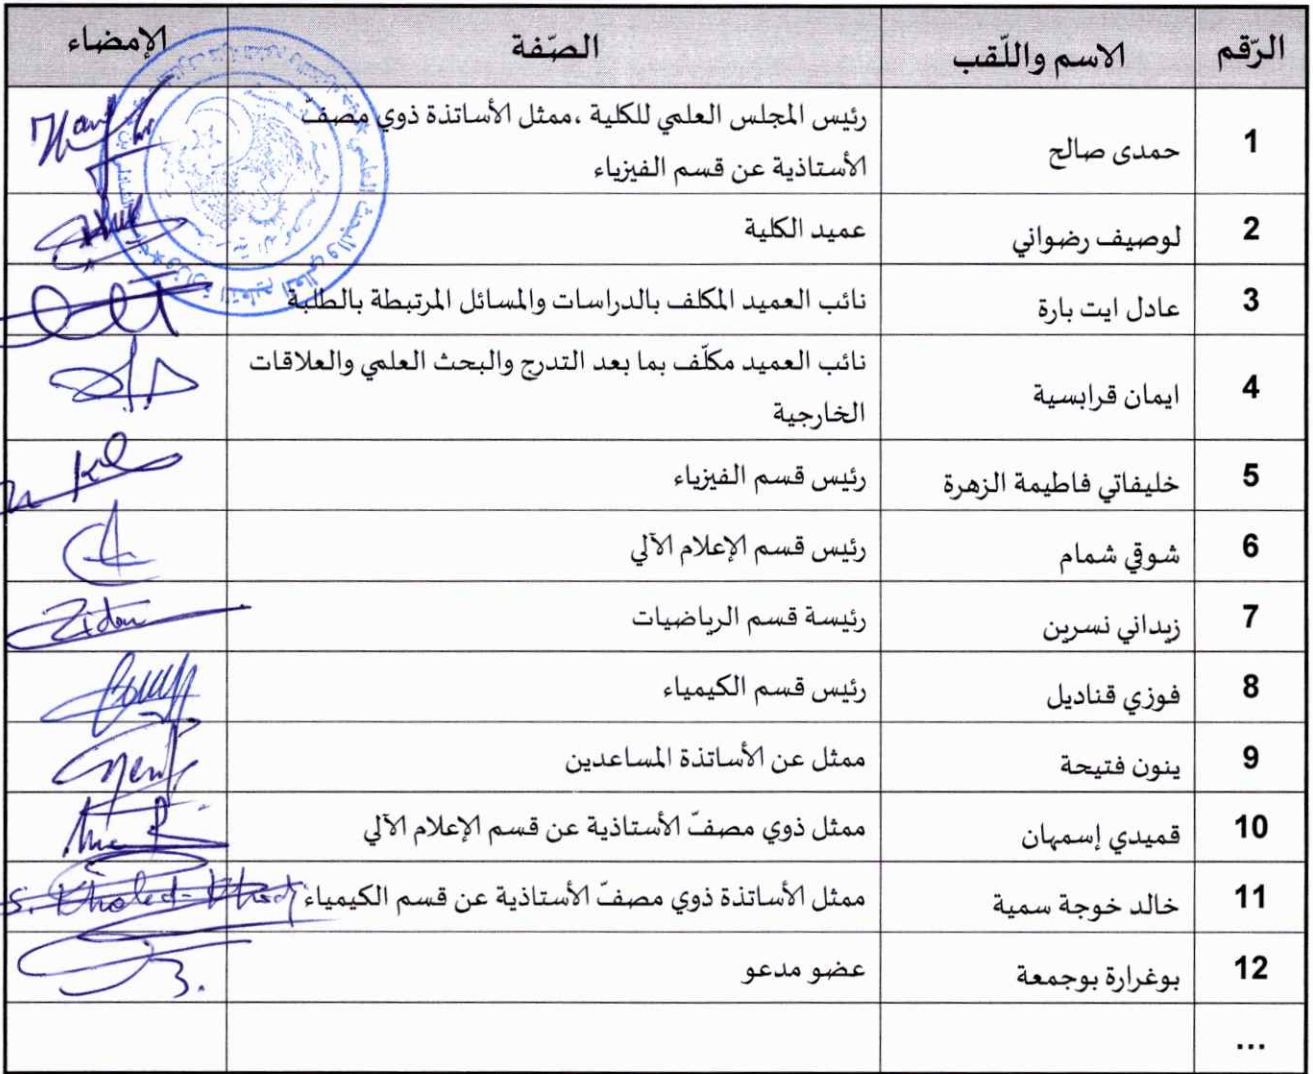 الرّقم الاسم واللّقب الصّفة الإمضاء
1 حمدى صالح رئيس المجلس العلمي للكلية ،ممثل الأساتذة ذوي مصفّ
الأستاذية عن قسم الفيزياء
2 لوصيف رضواني عميد الكلية
3 عادل ايت بارة نائب العميد المكلف بالدراسات والمسائل المرتبطة بالطلبة
4 ايمان قرابسية نائب العميد مكلّف بما بعد التدرج والبحث العلمي والعلاقات
الخارجية
5 خليفاتي فاطيمة الزهرة رئيس قسم الفيزياء
6 شوقي شمام رئيس قسم الإعلام الآلي
7 زيداني نسرين رئيسة قسم الرياضيات Zidani
8 فوزي قناديل رئيس قسم الكيمياء
9 ينون فتيحة ممثل عن الأساتذة المساعدين
10 قميدي إسمهان ممثل ذوي مصفّ الأستاذية عن قسم الإعلام الآلي
11 خالد خوجة سمية ممثل الأساتذة ذوي مصفّ الأستاذية عن قسم الكيمياء S. Khaled-Khodj
12 بوغرارة بوجمعة عضو مدعو
...
وزارة التعليم العالي والبحث العلمي